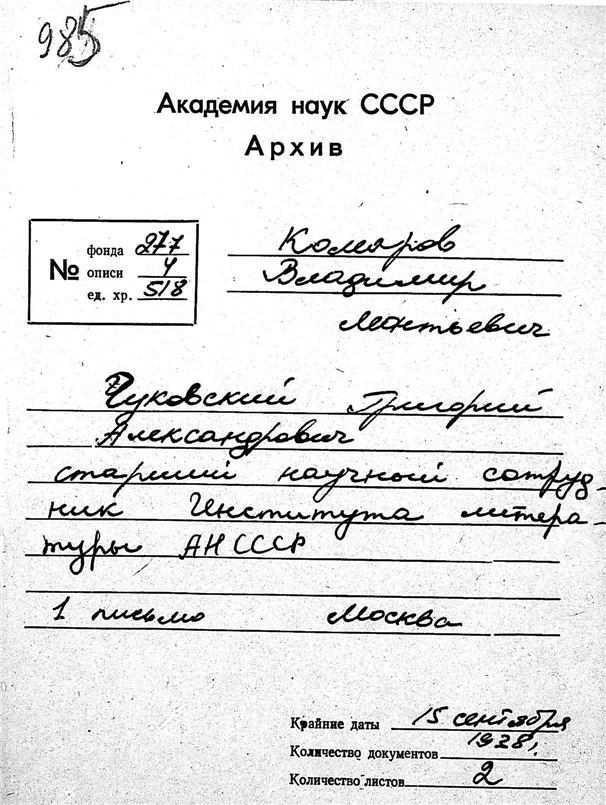 985
Академия наук СССР
Архив
№
фонда 277
описи 4
ед. хр. 518
Комаров
Владимир
Леонтьевич
Гуковский Григорий
Александрович
старший научный сотруд-
ник Института литера-
туры АН СССР
1 письмо Москва
Крайние даты 15 сентября
1938г.
Количество документов
Количество листов 2